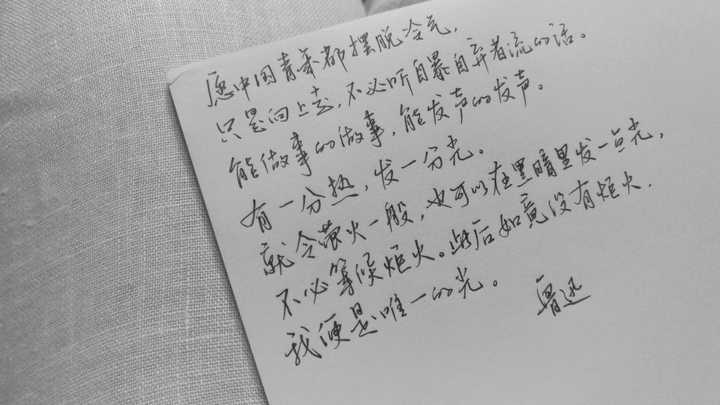 愿中国青年都摆脱冷气,
只是向上走,不必听自暴自弃者流的话。
能做事的做事,能发声的发声。
有一分热,发一分光。
就令萤火一般,也可以在黑暗里发一点光,
不必等候炬火。此后如竟没有炬火.
我便是唯一的光。
鲁迅